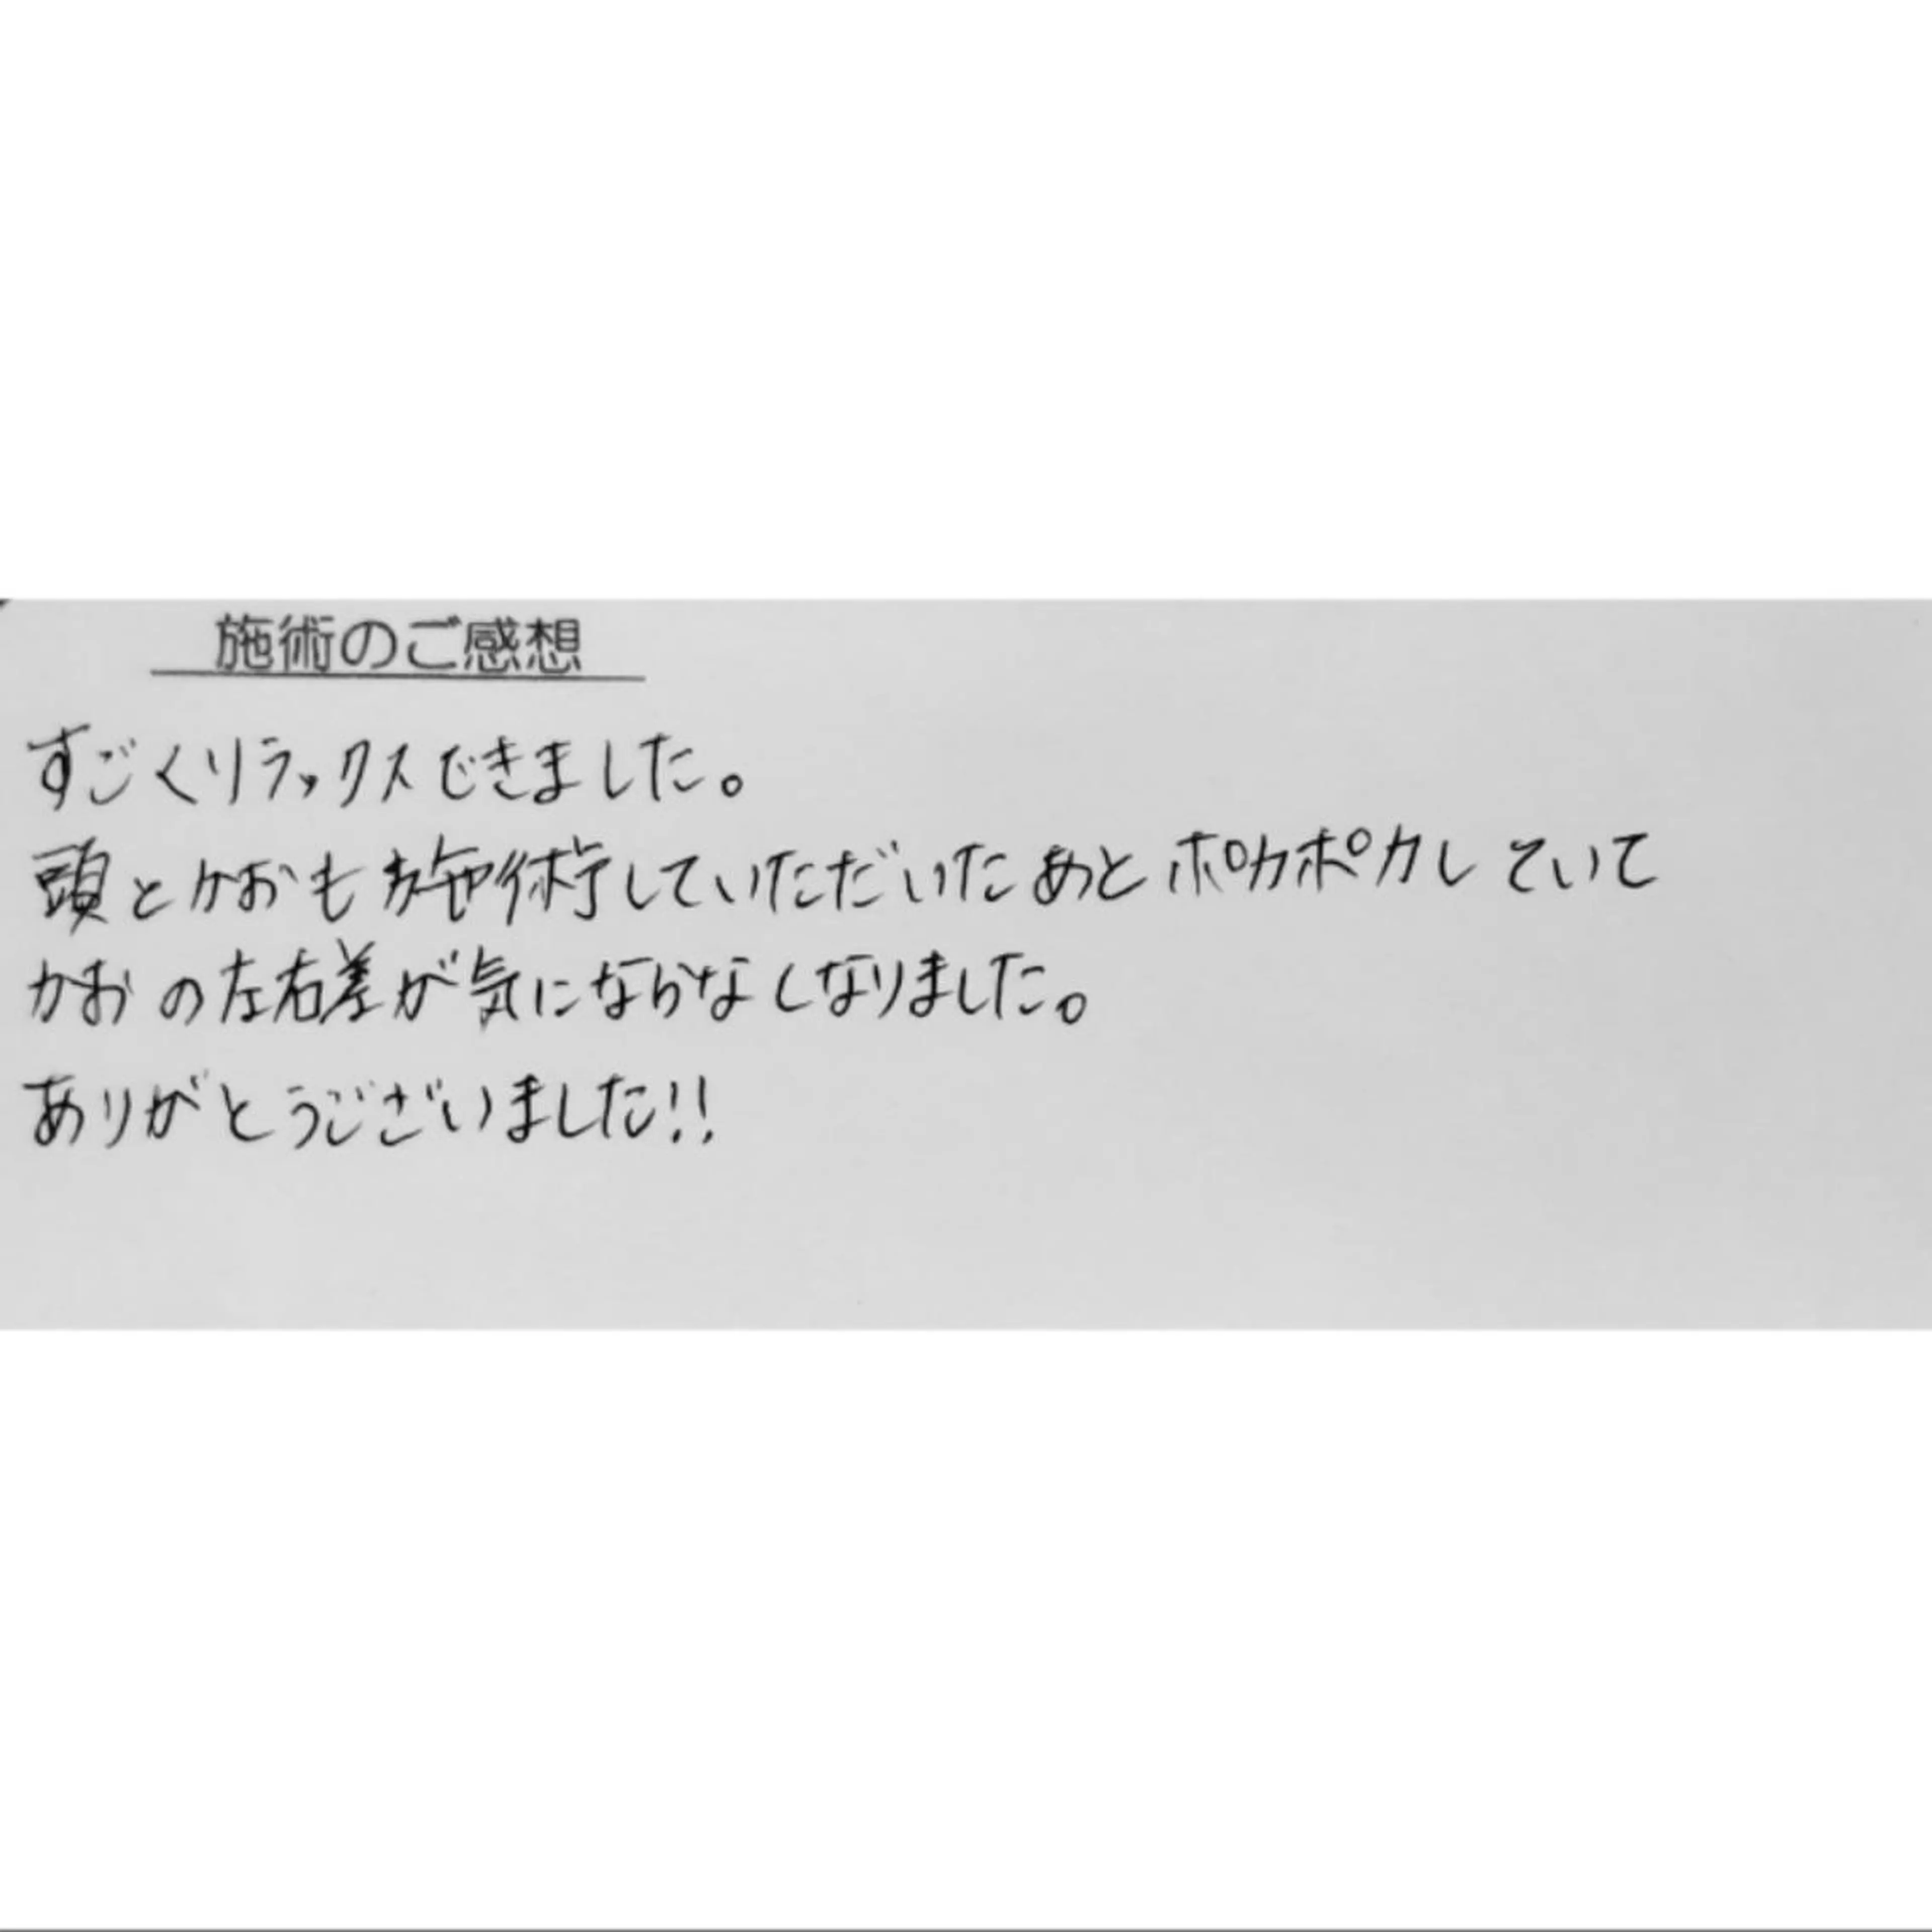 施術のご感想
すごくリラックスできました。
頭とかおも施術していただいたあとポカポカしていて
かおの左右差が気にならなくなりました。
ありがとうございました!!